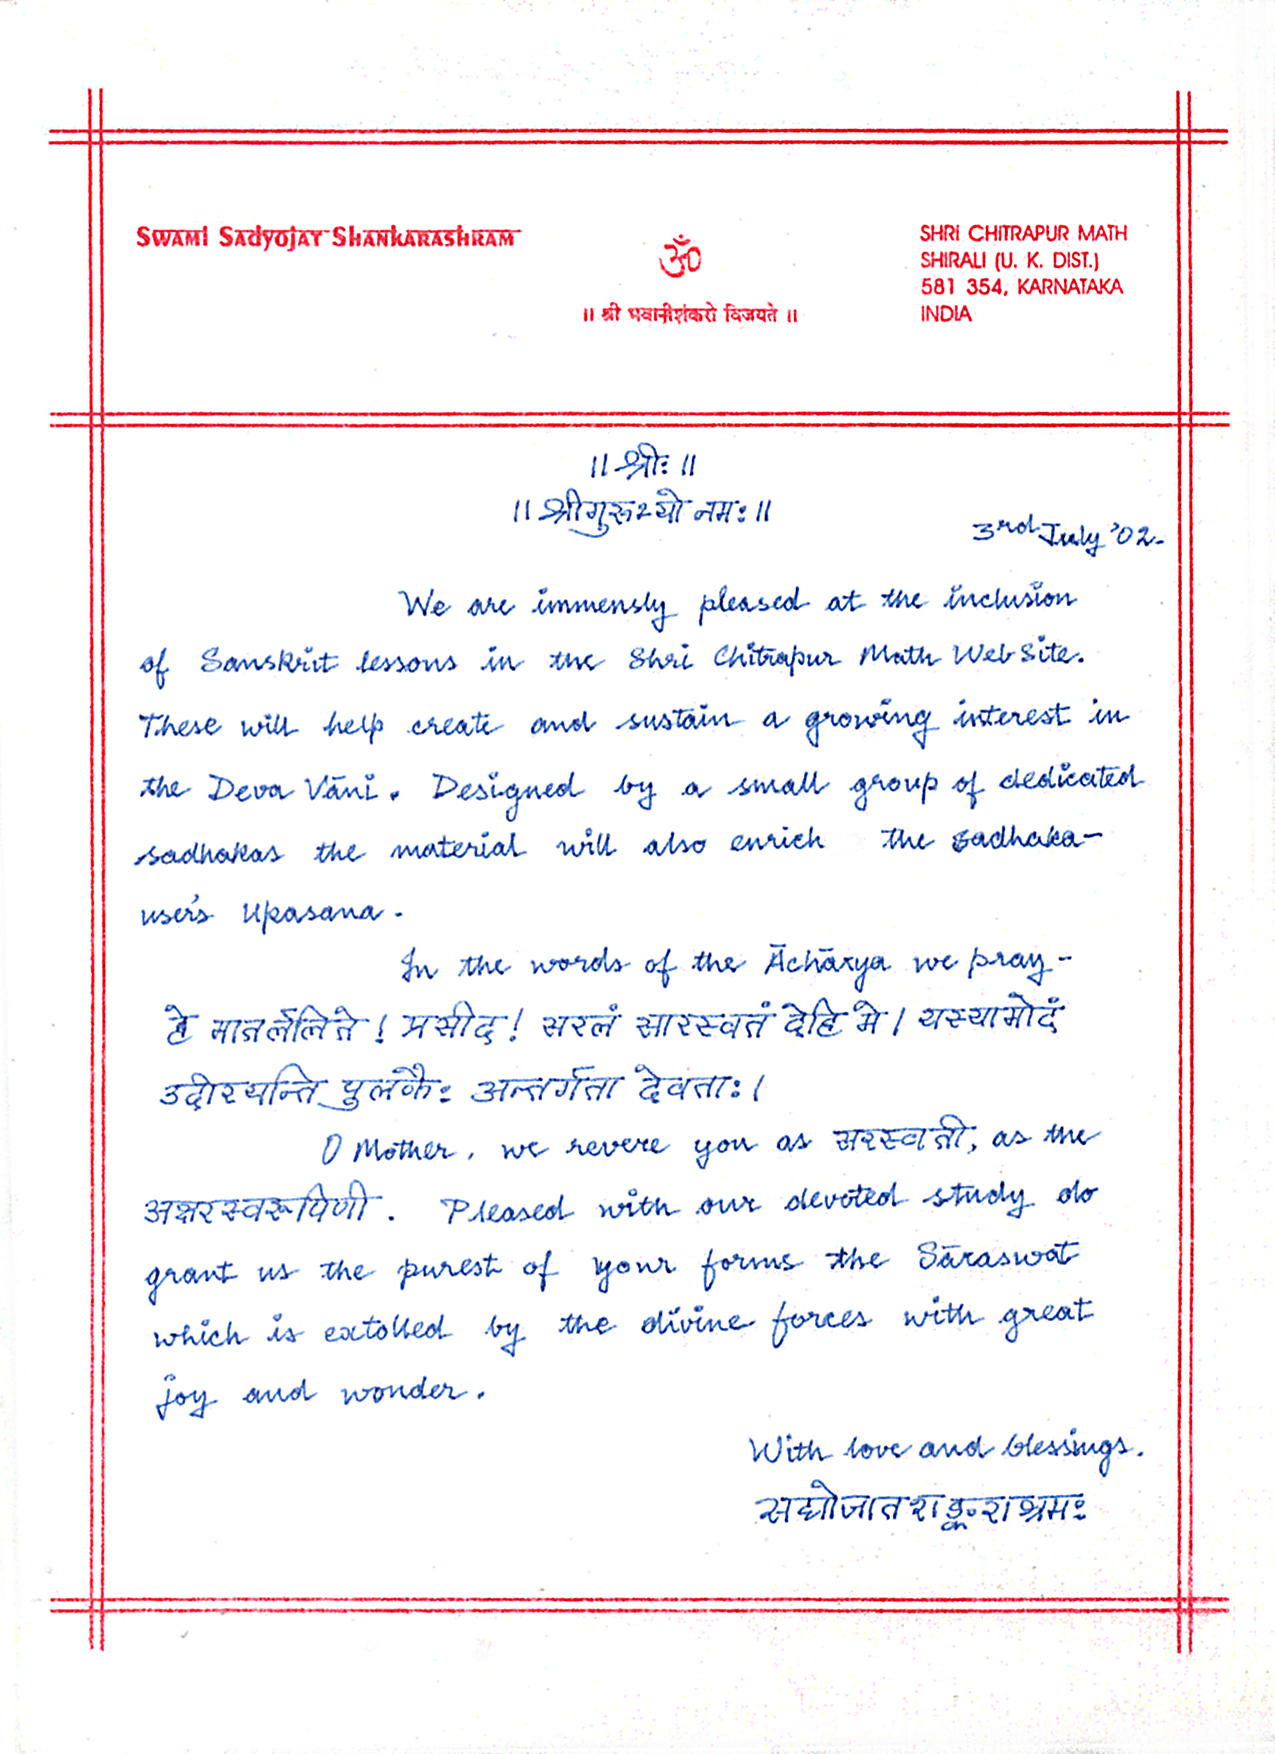 Swami Sadyojat Shankarashram
ॐ
॥ श्री भवानीशंकरो विजयते ॥
SHRI CHITRAPUR MATH
SHIRALI (U. K. DIST.)
581 354, KARNATAKA
INDIA
॥ श्रीः ॥
॥ श्रीगुरुभ्यो नमः ॥
3rd July '02.
We are immensly pleased at the inclusion
of Sanskrit lessons in the Shri Chitrapur Math Web Site.
These will help create and sustain a growing interest in
the Deva Vāni. Designed by a small group of dedicated
sadhakas the material will also enrich the sadhaka-
user's Upasana.
In the words of the Āchārya we pray-
हे मातर्ललिते ! प्रसीद ! सरलं सारस्वतं देहि मे । यस्यामोदं
उदीरयन्ति पुलकैः अन्तर्गता देवताः ।
O Mother, we revere you as सरस्वती, as the
अक्षरस्वरूपिणी. Pleased with our devoted study do
grant us the purest of your forms the Sāraswat
which is extolled by the divine forces with great
joy and wonder.
With love and blessings.
सद्योजात शङ्कराश्रमः